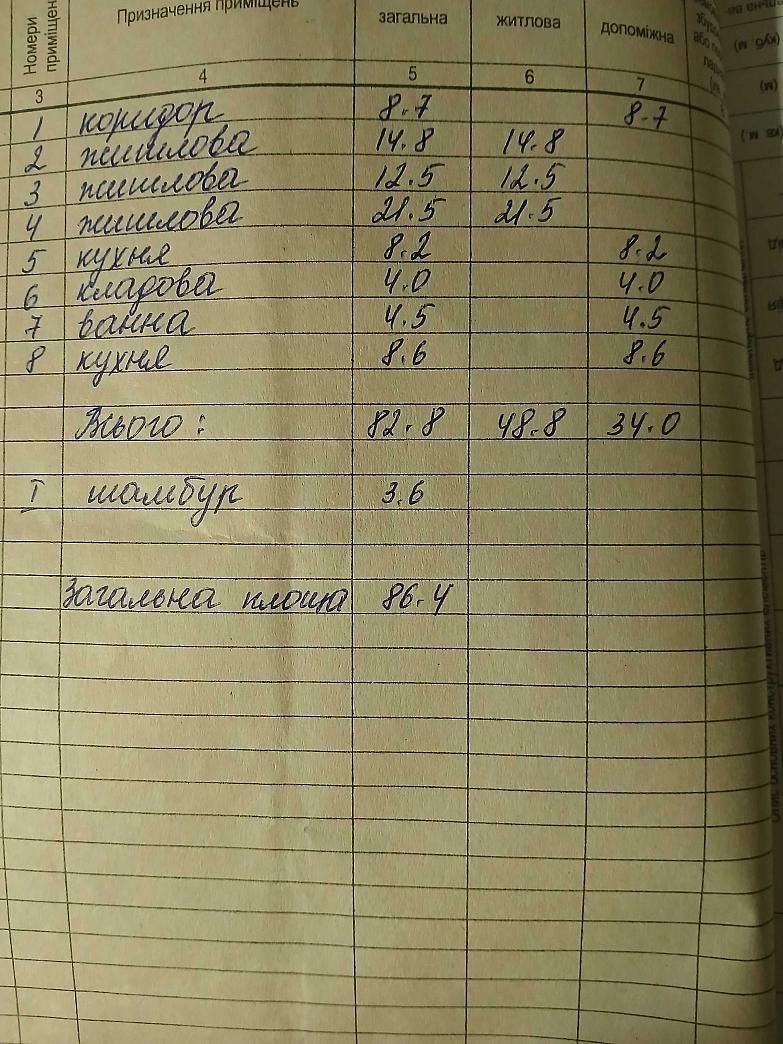 Номери приміщен Призначення приміщень загальна житлова допоміжна
3 4 5 6 7
1 коридор 8.7 8.7
2 житлова 14.8 14.8
3 житлова 12.5 12.5
4 житлова 21.5 21.5
5 кухня 8.2 8.2
6 кладова 4.0 4.0
7 ванна 4.5 4.5
8 кухня 8.6 8.6
Всього: 82.8 48.8 34.0
I тамбур 3.6
Загальна площа 86.4